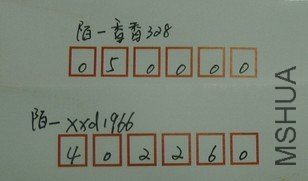 陌一香香328
050000
陌一xxd1966
402260
MSHUA